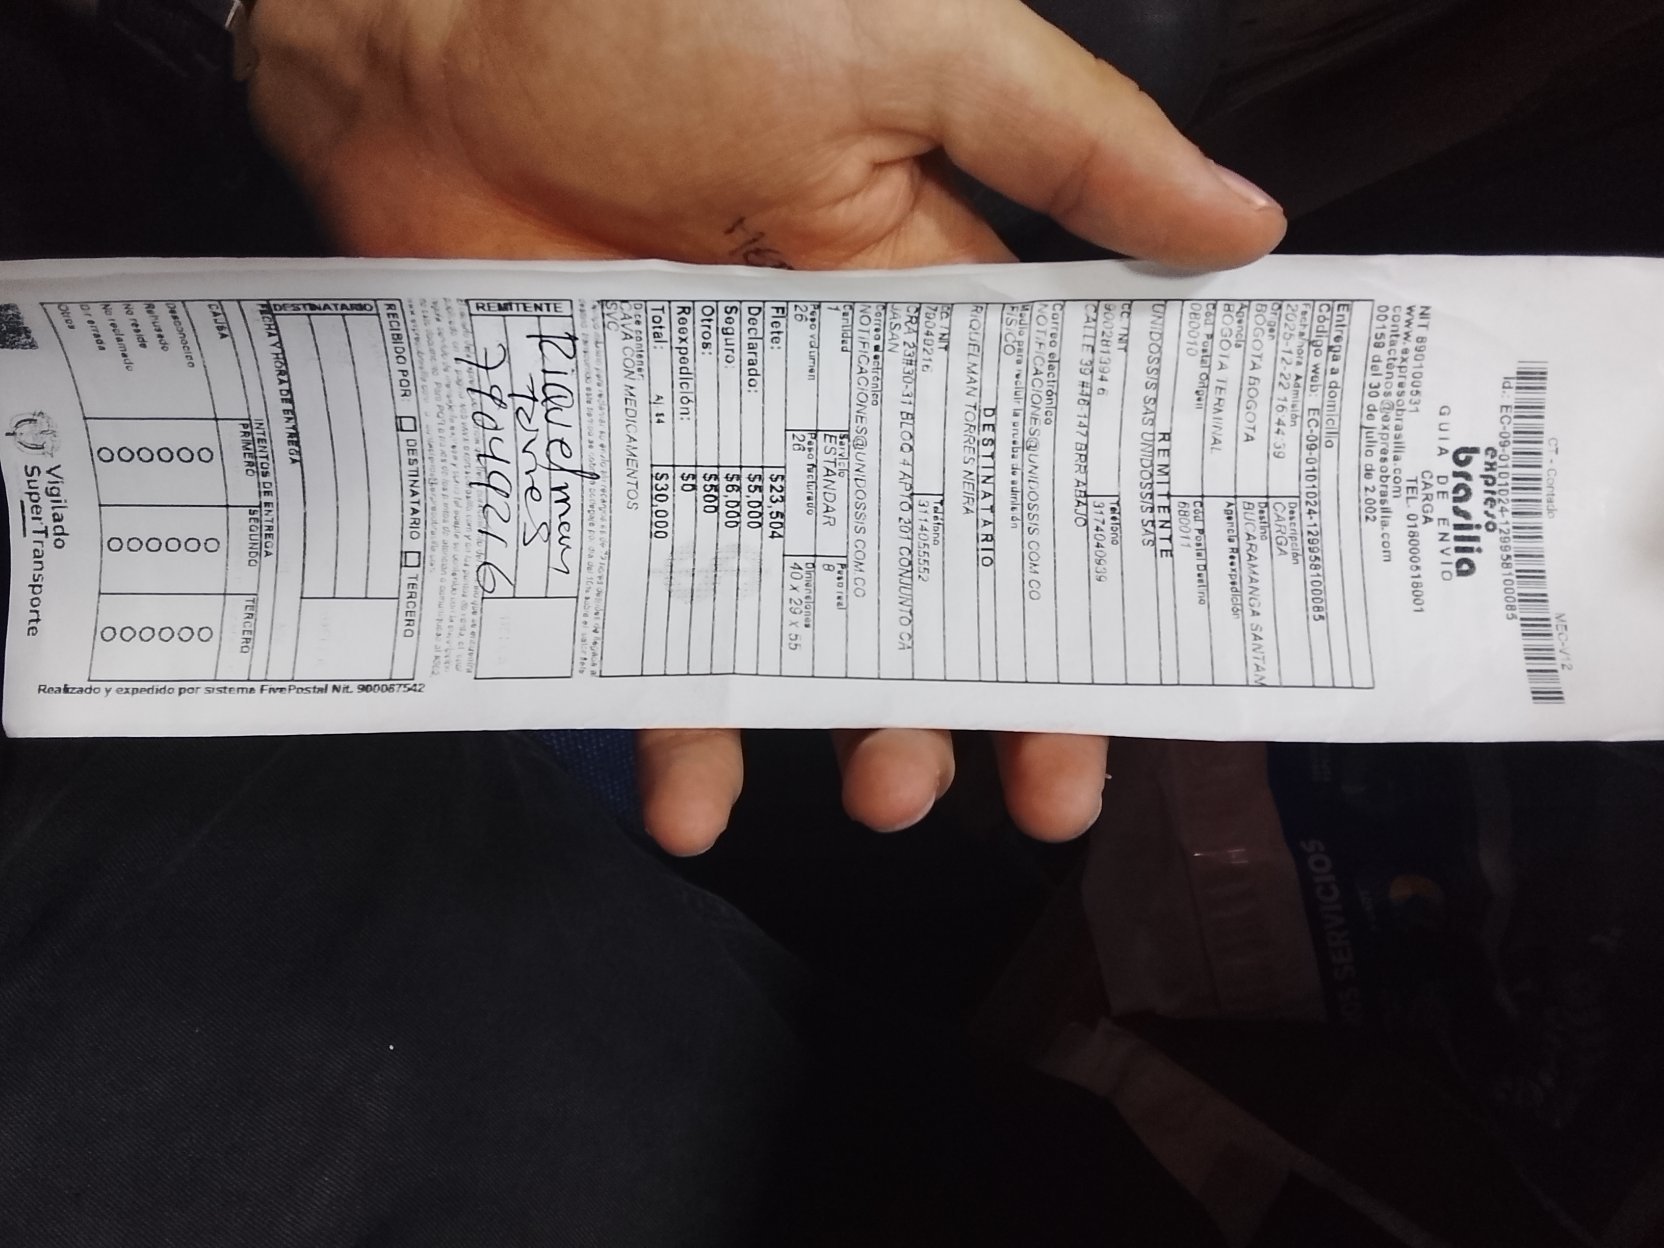 CT - Contado
MEC-V12
Id.: EC-09-0101024-12995810008​5
expreso
brasilia
GUIA DE ENVIO
CARGA
NIT 890100531 TEL. 018000518001
www.expresobrasilia.com
contactenos@expresobrasilia.com
00159 del 30 de julio de 2.002
Entrega a domicilio
Código web: EC-09-0101024-129958100085
Fecha/Hora Admisión
2025-12-22 16:44:39
Descripción
CARGA
Origen
BOGOTA BOGOTA
Destino
BUCARAMANGA SANTAN
Agencia
BOGOTA TERMINAL
Agencia Reexpedición
Cód. Postal Origen
Cód. Postal Destino
680011
REMITENTE
UNIDOSSIS SAS UNIDOSSIS SAS
CC. / NIT
900281994 6
Teléfono
3174040939
CALLE 39 #46 147 BRR ABAJO
Correo electrónico
NOTIFICACIONES@UNIDOSSIS.COM.CO
Medio para recibir la prueba de admisión
FISICO
DESTINATARIO
RIQUELMAN TORRES NEIRA
CC. / NIT
79049216
Teléfono
3114055552
CRA 23#30-31 BLOQ 4 APTO 201 CONJUNTO CA
JASAN
Correo electrónico
NOTIFICACIONES@UNIDOSSIS.COM.CO
Cantidad
1
Servicio
ESTANDAR
Peso real
8
Peso volumen
26
Peso facturado
26
Dimensiones
40 x 29 x 55
Flete: $23,504
Declarado: $5,000
Seguro: $6,000
Otros: $500
Reexpedición: $0
Total: Aj. $4 $30,000
Dice contener:
CAVA CON MEDICAMENTOS
SVC
REMITENTE
Riquelman
Torres
79049216
RECIBIDO POR: DESTINATARIO TERCERO
DESTINATARIO
FECHA Y HORA DE ENTREGA
INTENTOS DE ENTREGA
CAUSA PRIMERO SEGUNDO TERCERO
Desconocido
Rehusado
No reside
No reclamado
Dir. errada
Otros
Realizado y expedido por sistema FivePostal Nit. 900087542
Vigilado
SuperTransporte
OS SERVICIOS